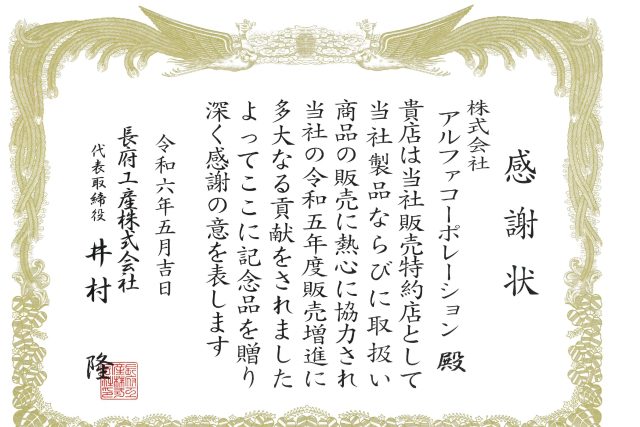 感謝状
株式会社
アルファコーポレーション 殿
貴店は当社販売特約店として
当社製品ならびに取扱い
商品の販売に熱心に協力され
当社の令和五年度販売増進に
多大なる貢献をされました
よってここに記念品を贈り
深く感謝の意を表します
令和六年五月吉日
長府工産株式会社
代表取締役 井村 隆